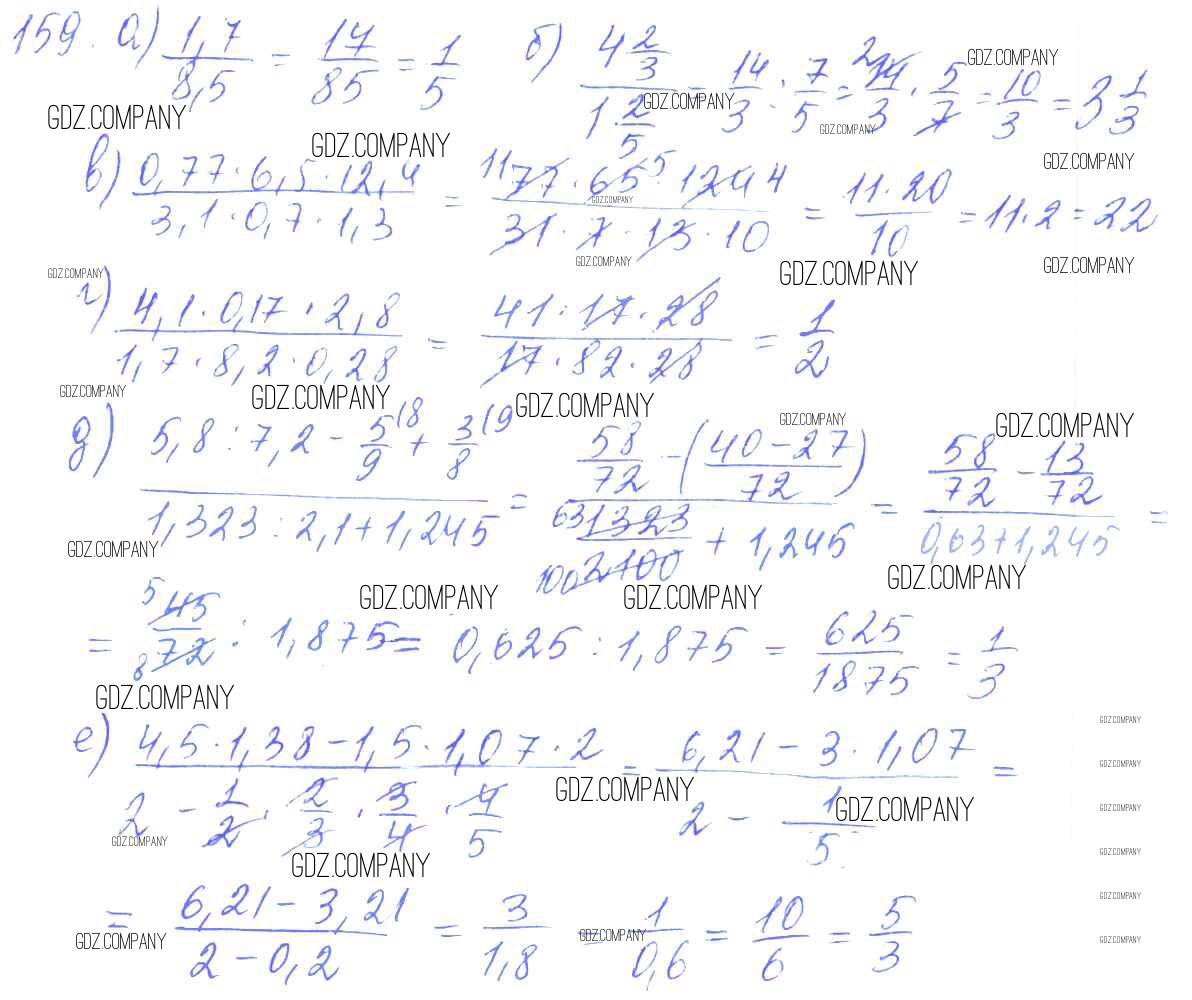 159. а) 1,7/8,5 = 17/85 = 1/5   б) 4 2/3 / 1 2/5 = 14/3 : 7/5 = 2 14/3 · 5/7 = 10/3 = 3 1/3
GDZ.COMPANY GDZ.COMPANY GDZ.COMPANY GDZ.COMPANY GDZ.COMPANY GDZ.COMPANY
в) 0,77·6,5·12,4 / 3,1·0,7·1,3 = 11 77·65 5·124 4 / 31·7·13·10 = 11·20/10 = 11·2 = 22
GDZ.COMPANY GDZ.COMPANY GDZ.COMPANY GDZ.COMPANY GDZ.COMPANY
г) 4,1·0,17·2,8 / 1,7·8,2·0,28 = 41·17·28 / 17·82·28 = 1/2
GDZ.COMPANY GDZ.COMPANY GDZ.COMPANY GDZ.COMPANY GDZ.COMPANY
д) 5,8:7,2 - 5/9 (8 + 3/8 (9 / 1,323:2,1+1,245 = 58/72 - (40-27/72) / 63 1323/100 2100 + 1,245 = 58/72 - 13/72 / 0,63+1,245 =
GDZ.COMPANY GDZ.COMPANY GDZ.COMPANY GDZ.COMPANY
= 5 45/8 72 : 1,875 = 0,625 : 1,875 = 625/1875 = 1/3
GDZ.COMPANY GDZ.COMPANY
е) 4,5·1,38-1,5·1,07·2 / 2 - 1/2 · 2/3 · 3/4 · 4/5 = 6,21-3·1,07 / 2 - 1/5 =
GDZ.COMPANY GDZ.COMPANY GDZ.COMPANY GDZ.COMPANY
GDZ.COMPANY GDZ.COMPANY
GDZ.COMPANY GDZ.COMPANY
= 6,21-3,21 / 2-0,2 = 3/1,8 = 1/0,6 = 10/6 = 5/3
GDZ.COMPANY GDZ.COMPANY GDZ.COMPANY